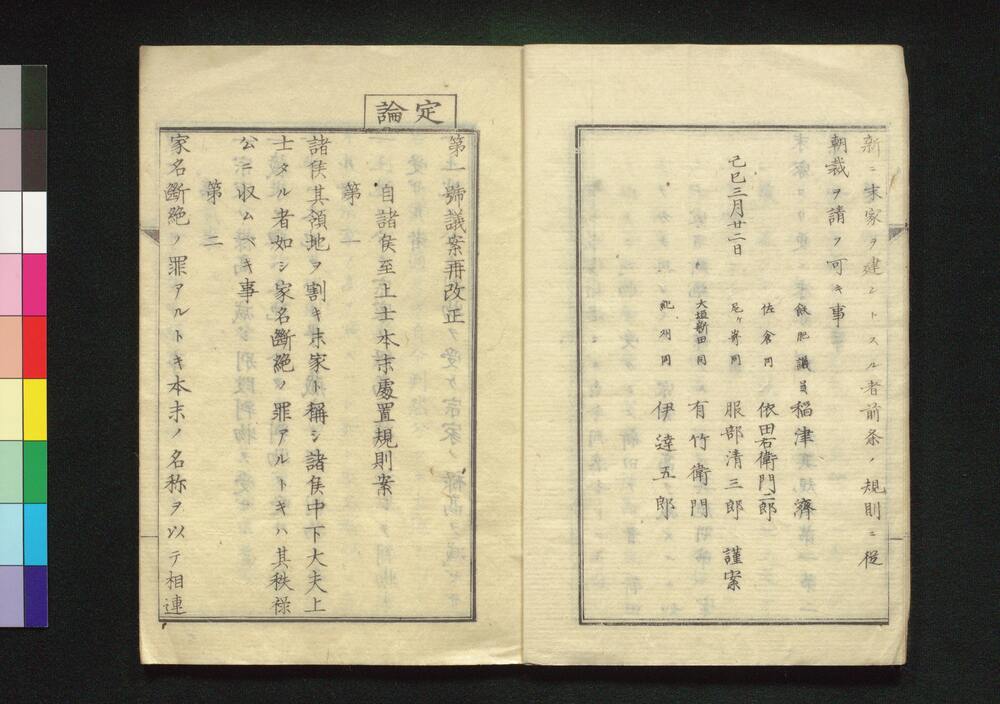 新ニ末家ヲ建ントスル者前条ノ規則ニ従
朝裁ヲ請フ可キ事
飫肥議員 稲津濟
佐倉同 依田右衛門二郎
己巳三月廿二日 尼ヶ崎同 服部清三郎 謹案
大垣新田同 有竹衛門
紀州同 伊達五郎
定論
第一號議案再改正
自諸侯至上士本末處置規則案
第一
諸侯其領地ヲ割キ末家ト稱シ諸侯中下大夫上
士タル者如シ家名斷絶ノ罪アルトキハ其秩禄
公ニ収ムヘキ事
第二
家名斷絶ノ罪アルトキ本末ノ名称ヲ以テ相連